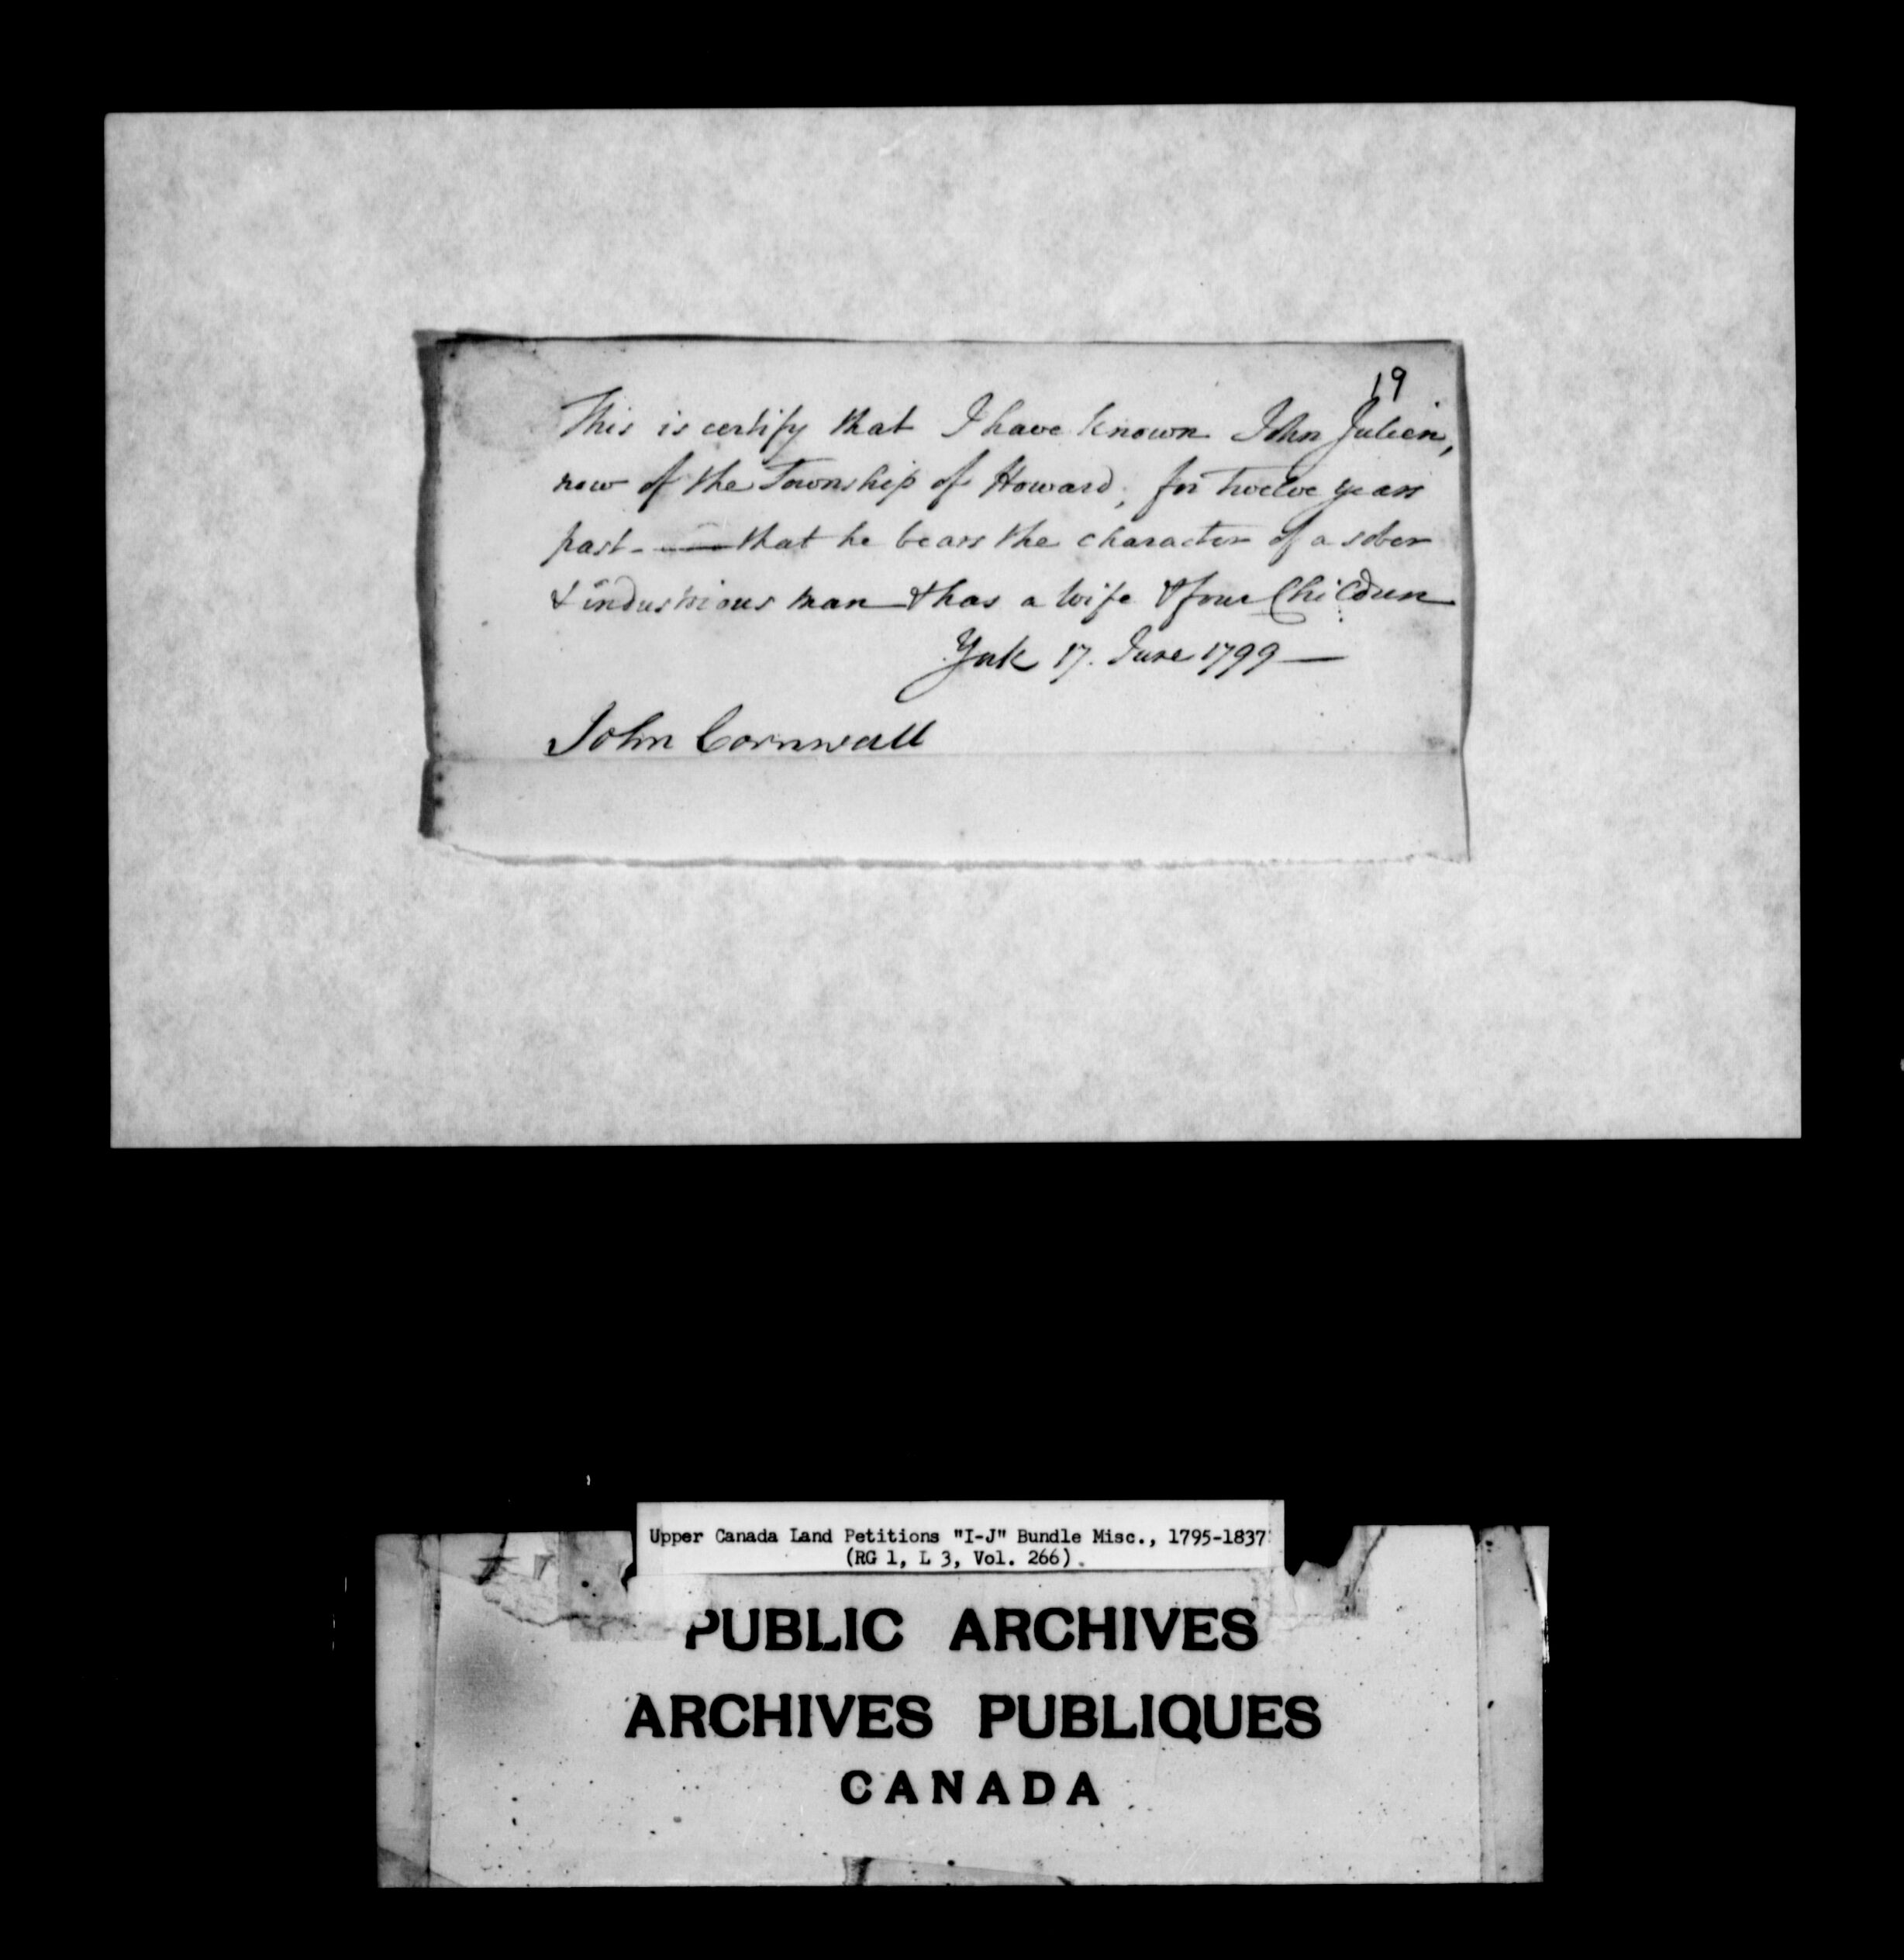 19
This is certify that I have known John Julien,
now of the Township of Howard, for twelve years
past - that he bears the character of a sober
& industrious man & has a wife & four Children
York 17. June 1799 —
John Cornwall
Upper Canada Land Petitions "I-J" Bundle Misc., 1795-1837
(RG 1, L 3, Vol. 266).
PUBLIC ARCHIVES
ARCHIVES PUBLIQUES
CANADA